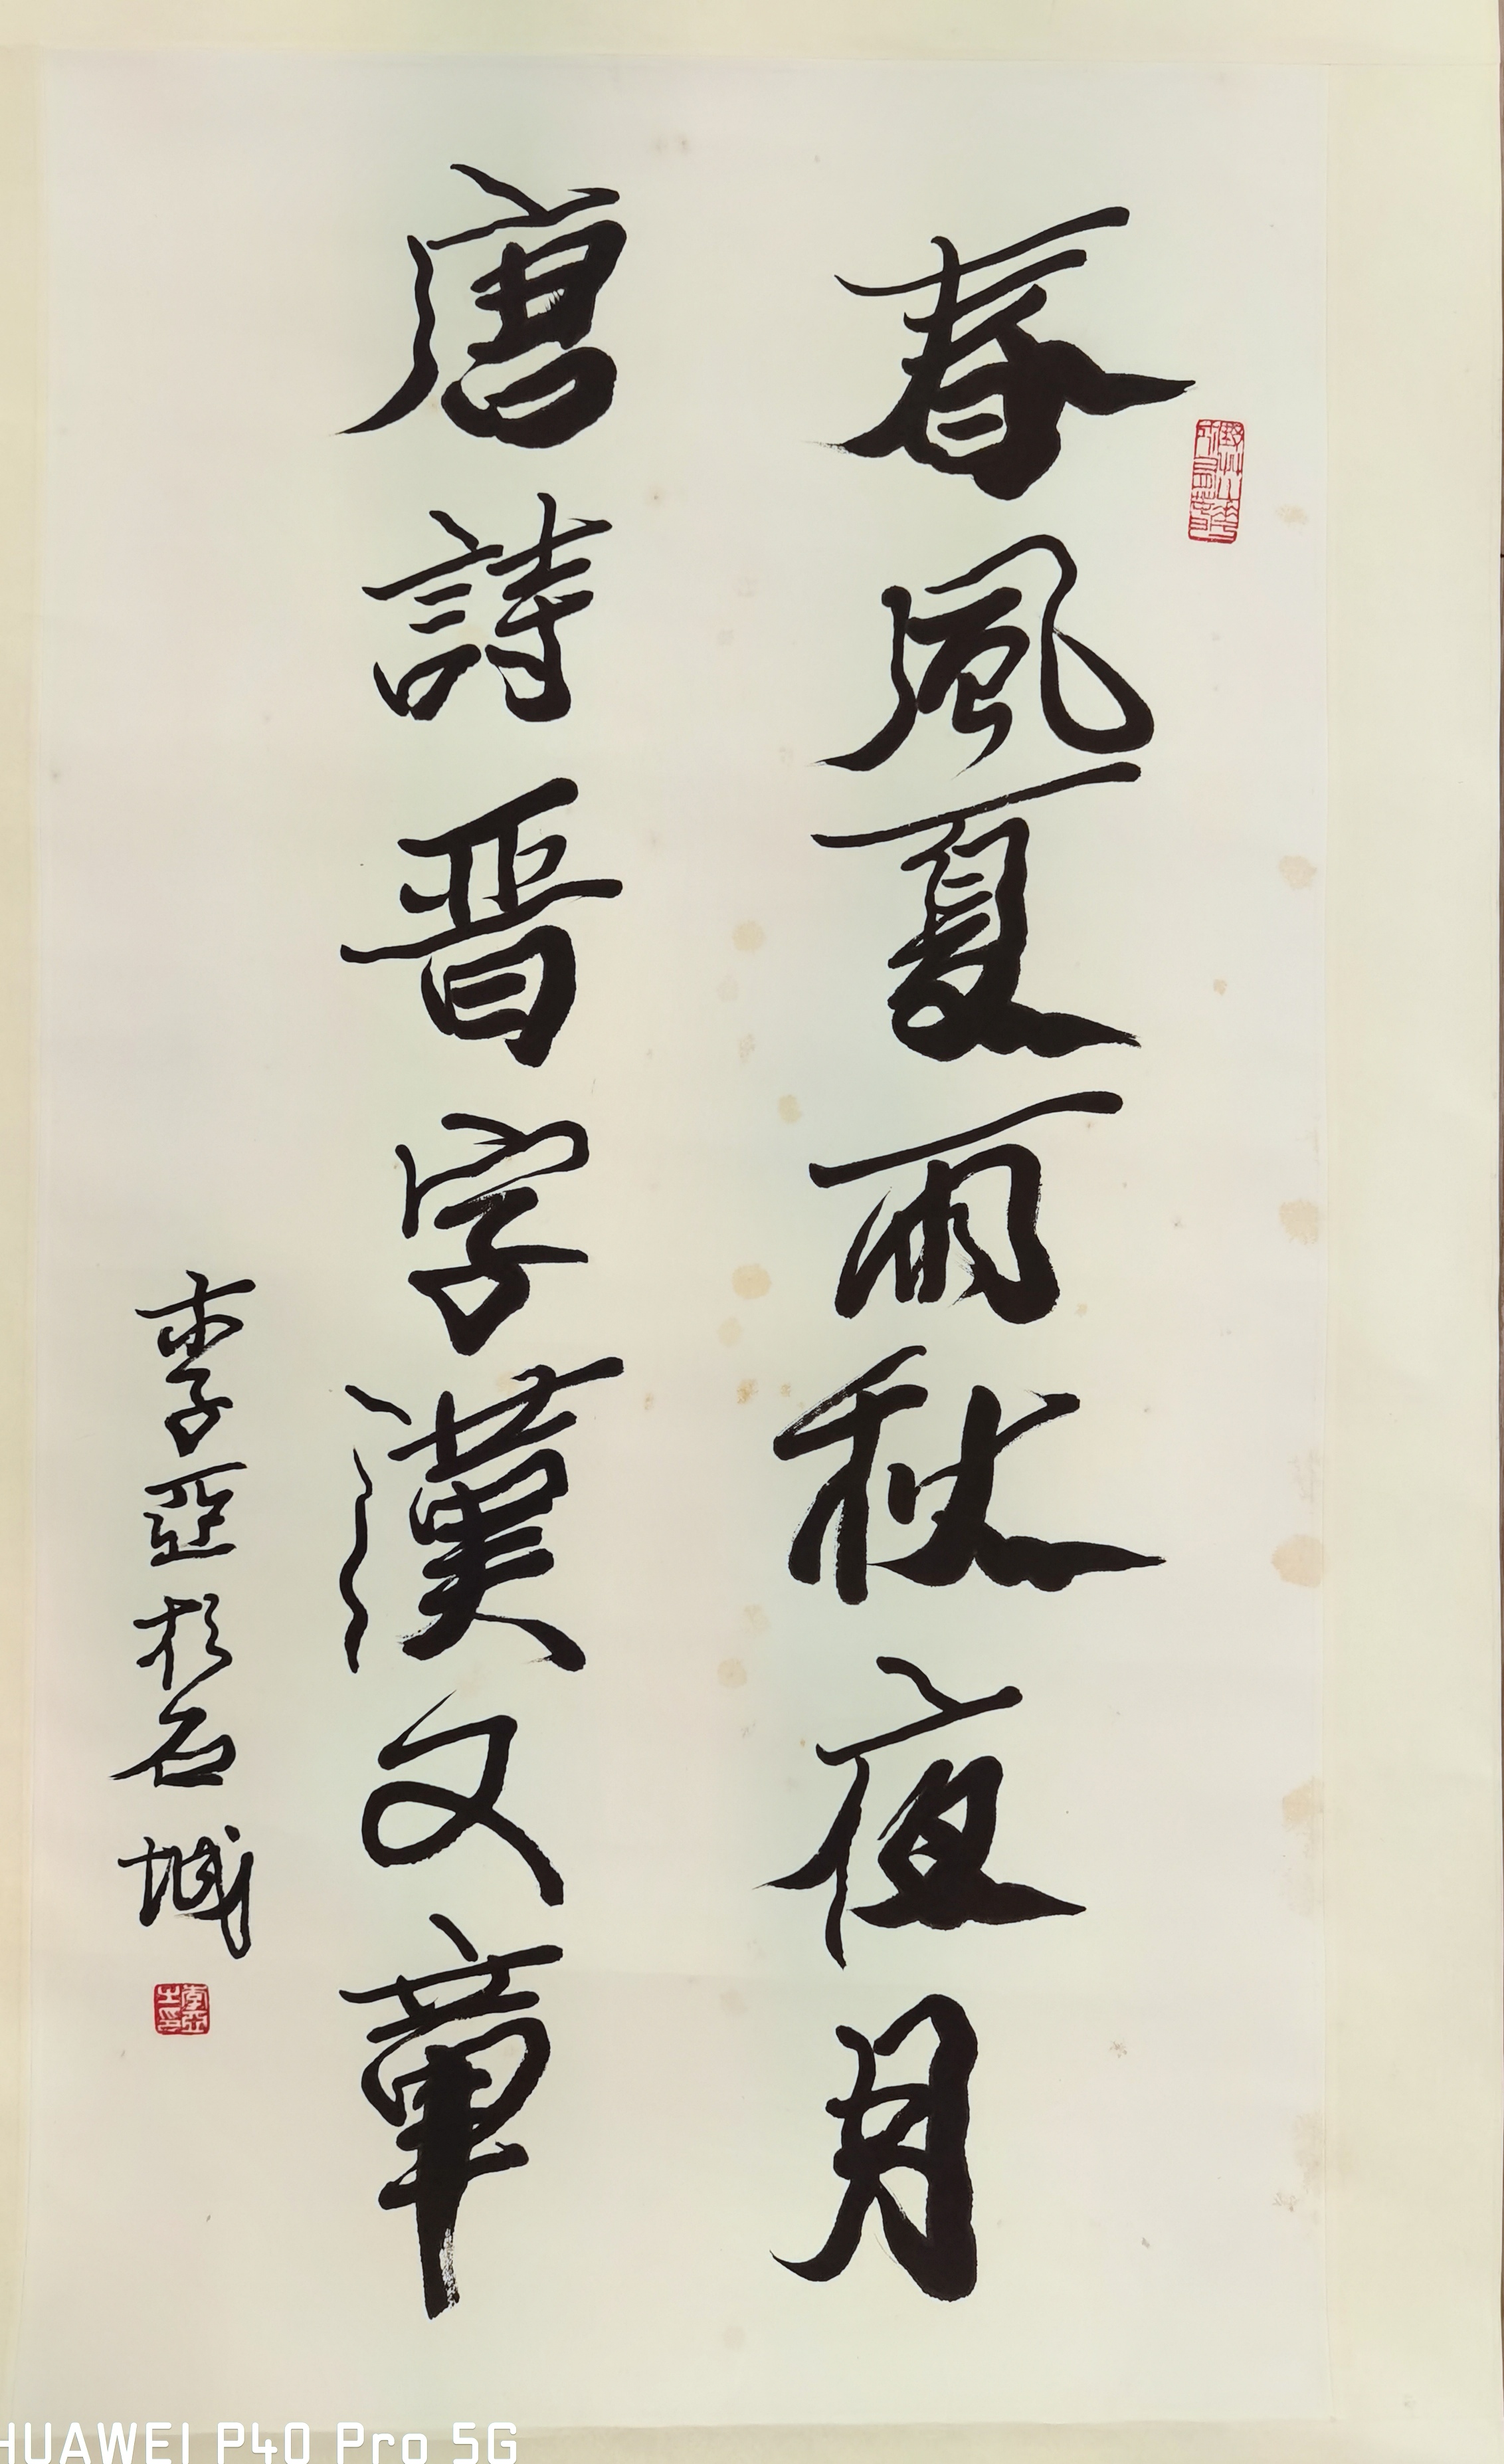 春風夏雨秋夜月
唐詩晋字漢文章
李亞於石城
李亞之印
HUAWEI P40 Pro 5G